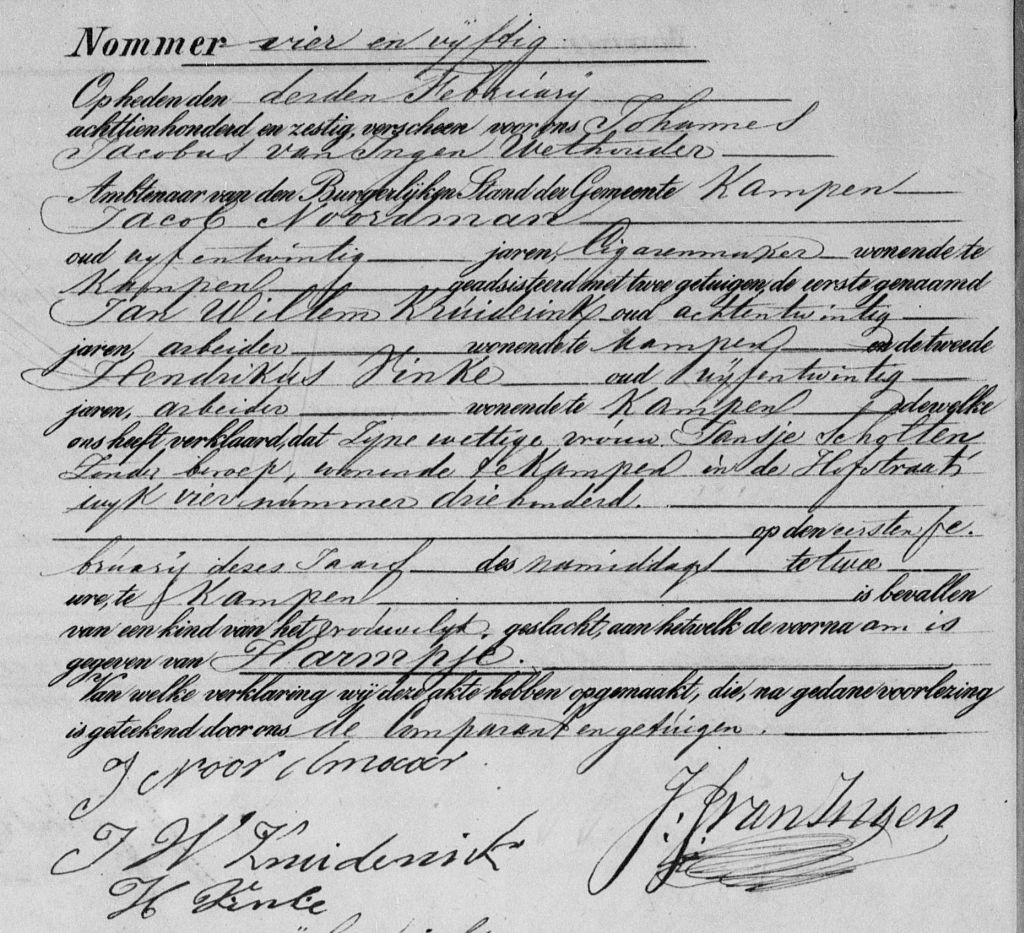 Nommer vier en vyftig
Op heden den derden February
achttienhonderd en zestig, verscheen voor ons Johannes
Jacobus van Ingen Wethouder
Ambtenaar van den Burgerlijken Stand der Gemeente Kampen
Jacob Noordman
oud vyf entwintig jaren, Cigarenmaker wonende te
Kampen geadsisteerd met twee getuigen, de eerste genaamd
Jan Willem Kruiderink oud achtentwintig
jaren, arbeider wonende te Kampen en de tweede
Hendrikus Vinke oud vyfentwintig
jaren, arbeider wonende te Kampen dewelke
ons heeft verklaard, dat Zyne wettige vrouw Jansje Scholten
Zonder beroep, wonende te Kampen in de Hofstraat
wyk vier nummer driehonderd.
op den eersten Fe-
bruary deses Jaars des namiddags te twee
ure, te Kampen is bevallen
van een kind van het vrouwelyk geslacht, aan hetwelk de voornaam is
gegeven van Harmpje.
Van welke verklaring wij deze akte hebben opgemaakt, die, na gedane voorlezing
is geteekend door ons de Comparant en getuigen.
J Noordman
J. J. van Ingen
J W Kruiderink
H Vinke